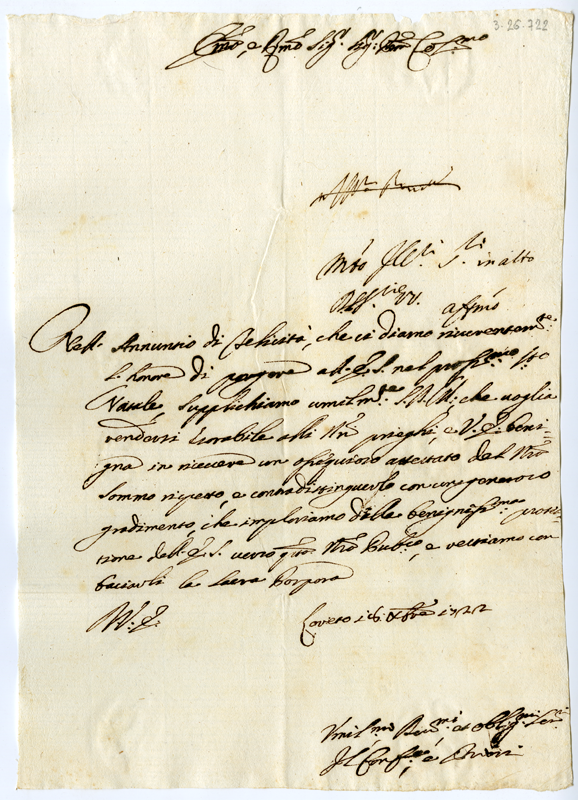 3-26-722
Em̃o, e Rm̃o Sig.r Sig.r Pr̃on Col.mo
in alto
affm̃o
Nell' Annuntio di Felicità, che ci diamo riverentem.te
L'honore di porgere all' E. S. nel pross.mo S.to
Natale, supplichiamo umilm.te S. D. M. che voglia
rendersi esorabile alli Nr̃i prieghi, e V. E. beni-
gna in ricevere un ossequioso attestato del Nr̃o
sommo rispetto, e contradistinguerlo con un generoso
gradimento che imploriamo dalla benigniss.ma prote-
tione dell' E. S. verso q.to Nr̃o Pub.co, e restiamo con
baciarli la sacra Porpora
Di V. E.
Loreto 16 Xbre 1722
Umil.mi Dev.mi et obblig.mi Ser.ri
Il Conf.re e Priori